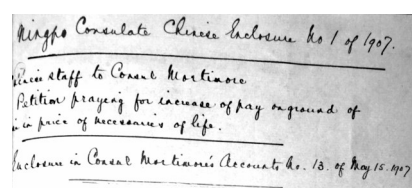 Ningpo Consulate Chinese Enclosure No 1 of 1907.
staff to Consul Mortimore
Petition praying for increase of pay on ground of
in price of necessaries of life.
Enclosure in Consul Mortimore's Accounts No. 13. of May 15. 1907